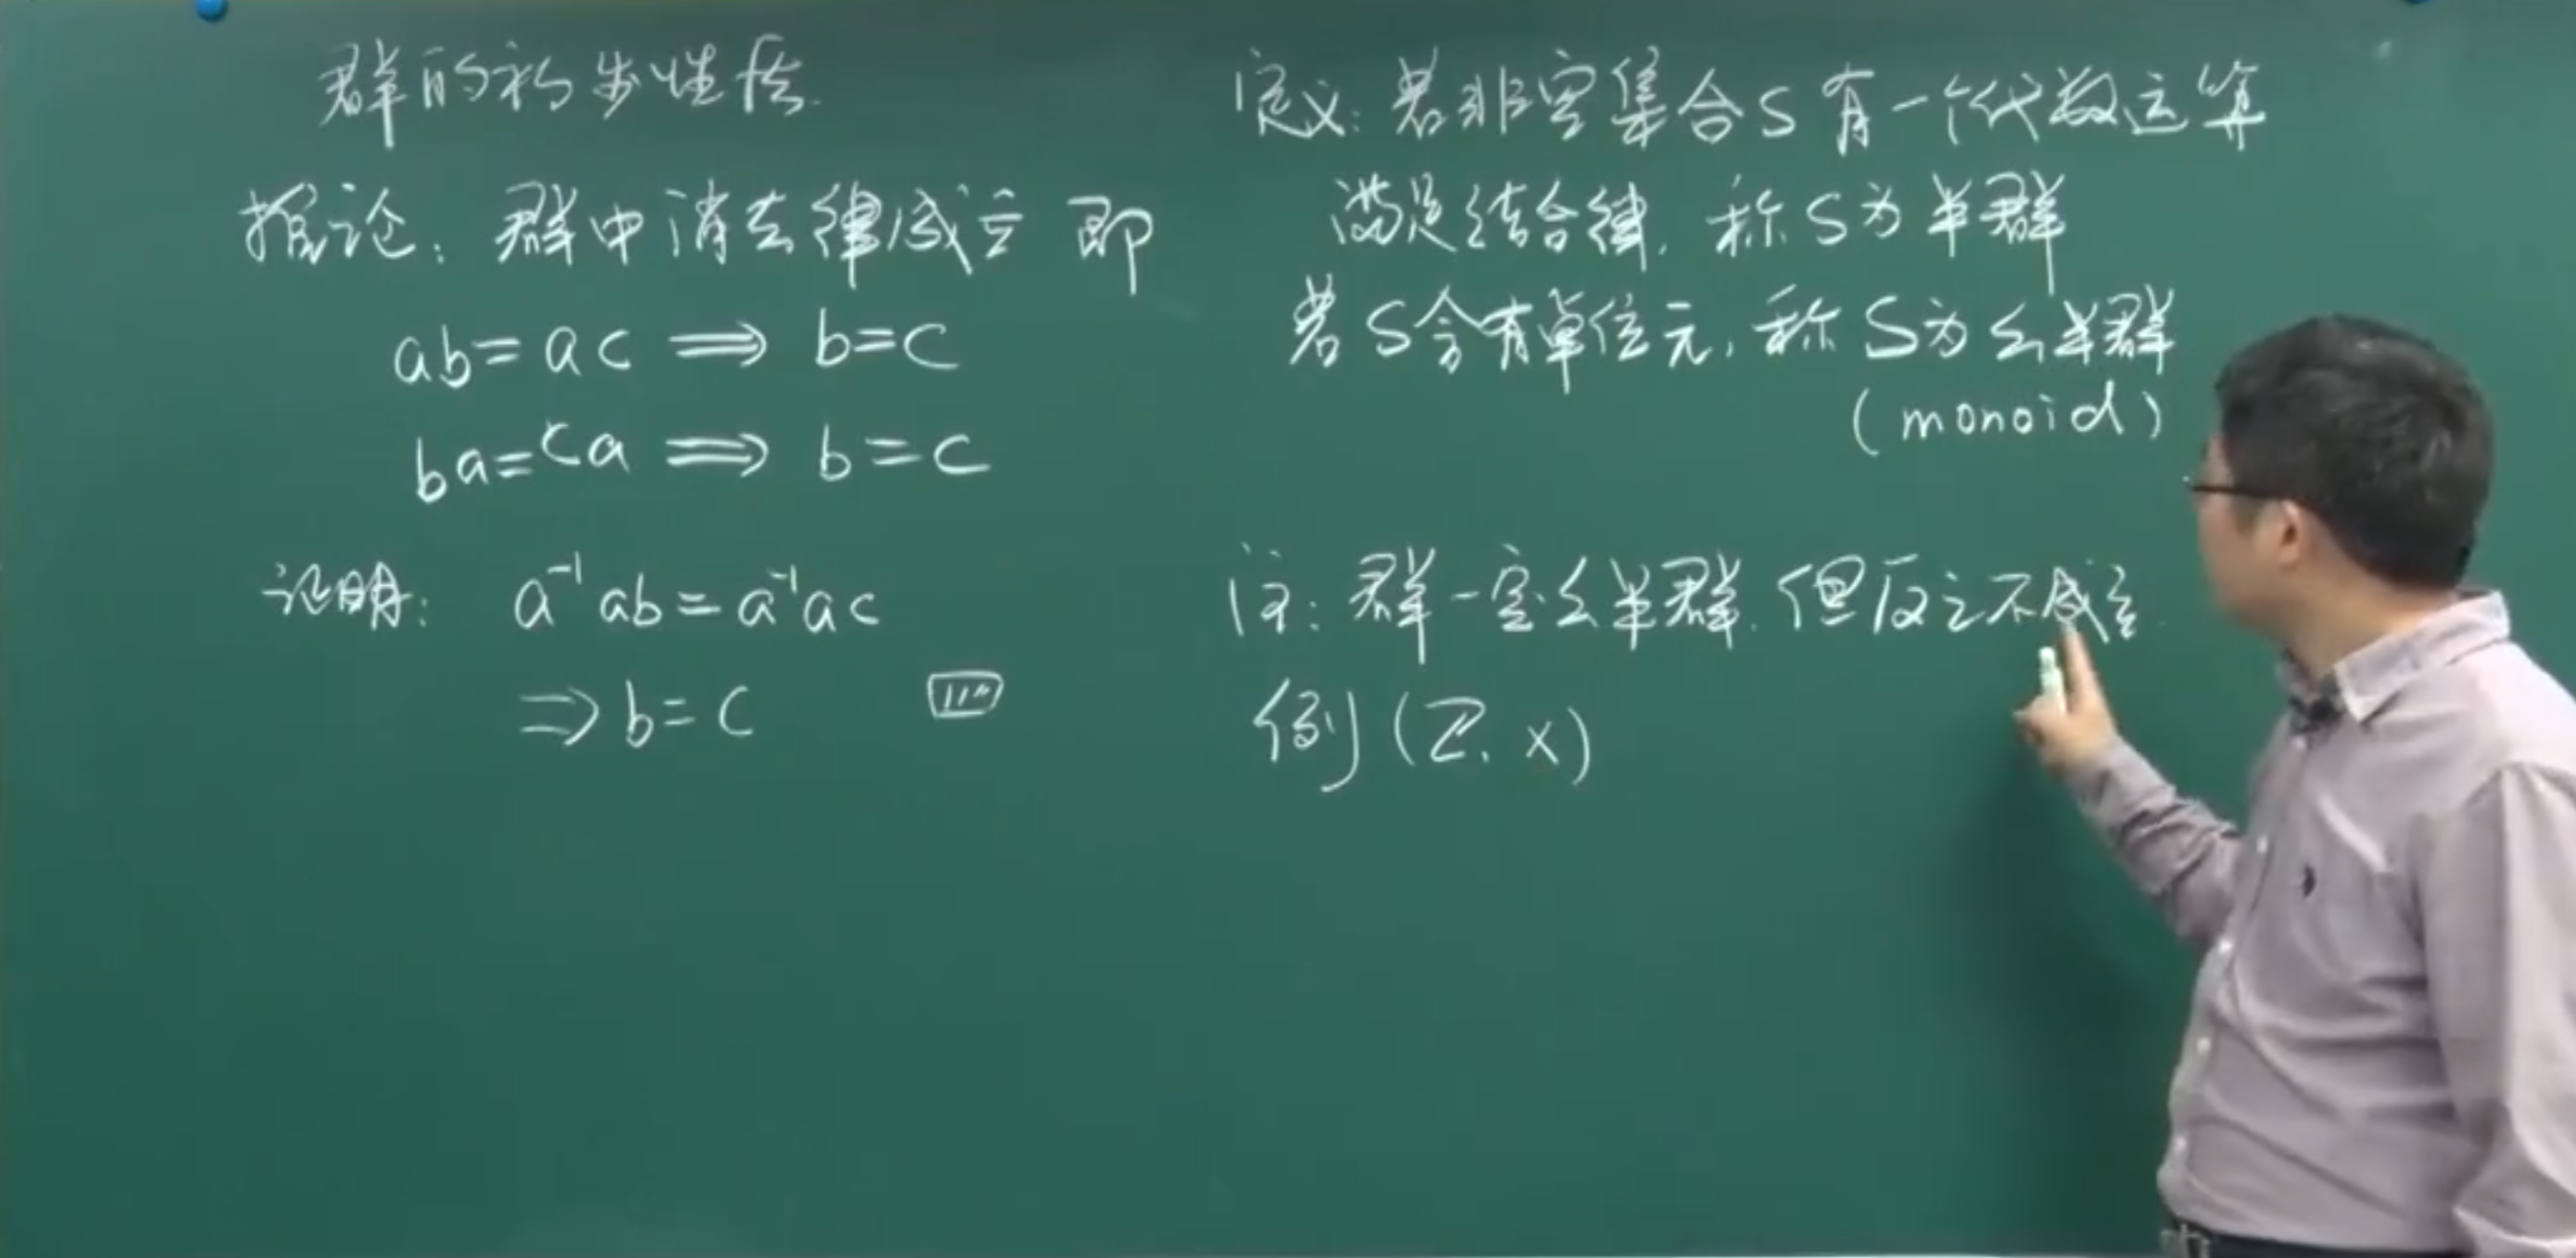 群的初步性质.
推论: 群中消去律成立 即
ab=ac ⟹ b=c
ba=ca ⟹ b=c
证明: a⁻¹ab=a⁻¹ac
⇒b=c
定义: 若非空集合S有一个代数运算
满足结合律, 称S为半群
若S含有单位元, 称S为幺半群
(monoid)
注: 群一定幺半群. 但反之不成立.
例(Z, ×)